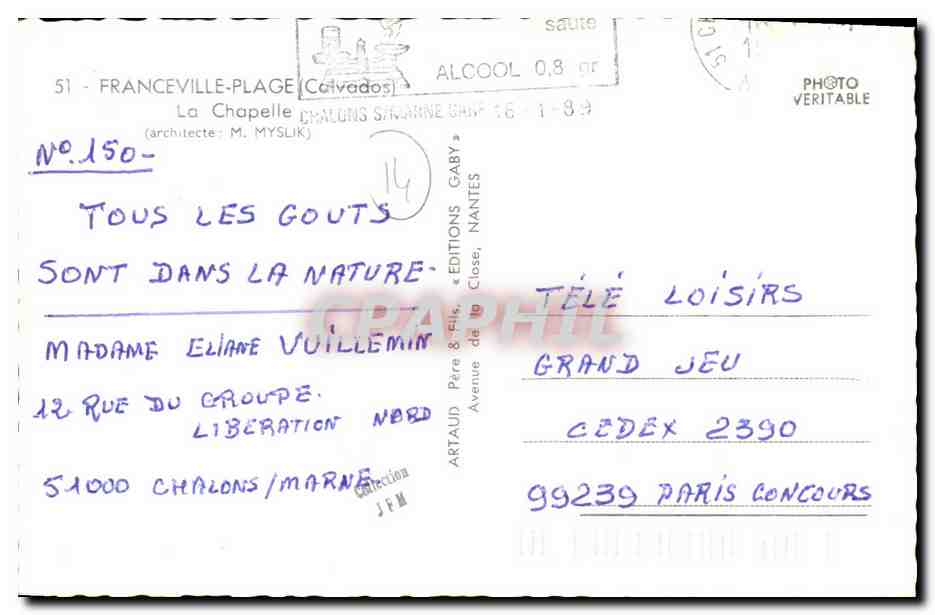 sauté
ALCOOL 0,8 gr
51 - FRANCEVILLE-PLAGE (Calvados)
La Chapelle
(architecte : M. MYSLIK)
CHALONS S/MARNE GARE 16 - 1 - 89
PHOTO
VERITABLE
No. 150-
14
TOUS LES GOUTS
SONT DANS LA NATURE-
MADAME ELIANE VUILLEMIN
12 RUE DU GROUPE.
LIBERATION NORD
51000 CHALONS/MARNE
Collection
JFM
ARTAUD Père & Fils, « EDITIONS GABY »
Avenue de la Close, NANTES
CPAPHIL
TÉLÉ LOISIRS
GRAND JEU
CEDEX 2390
99239 PARIS CONCOURS